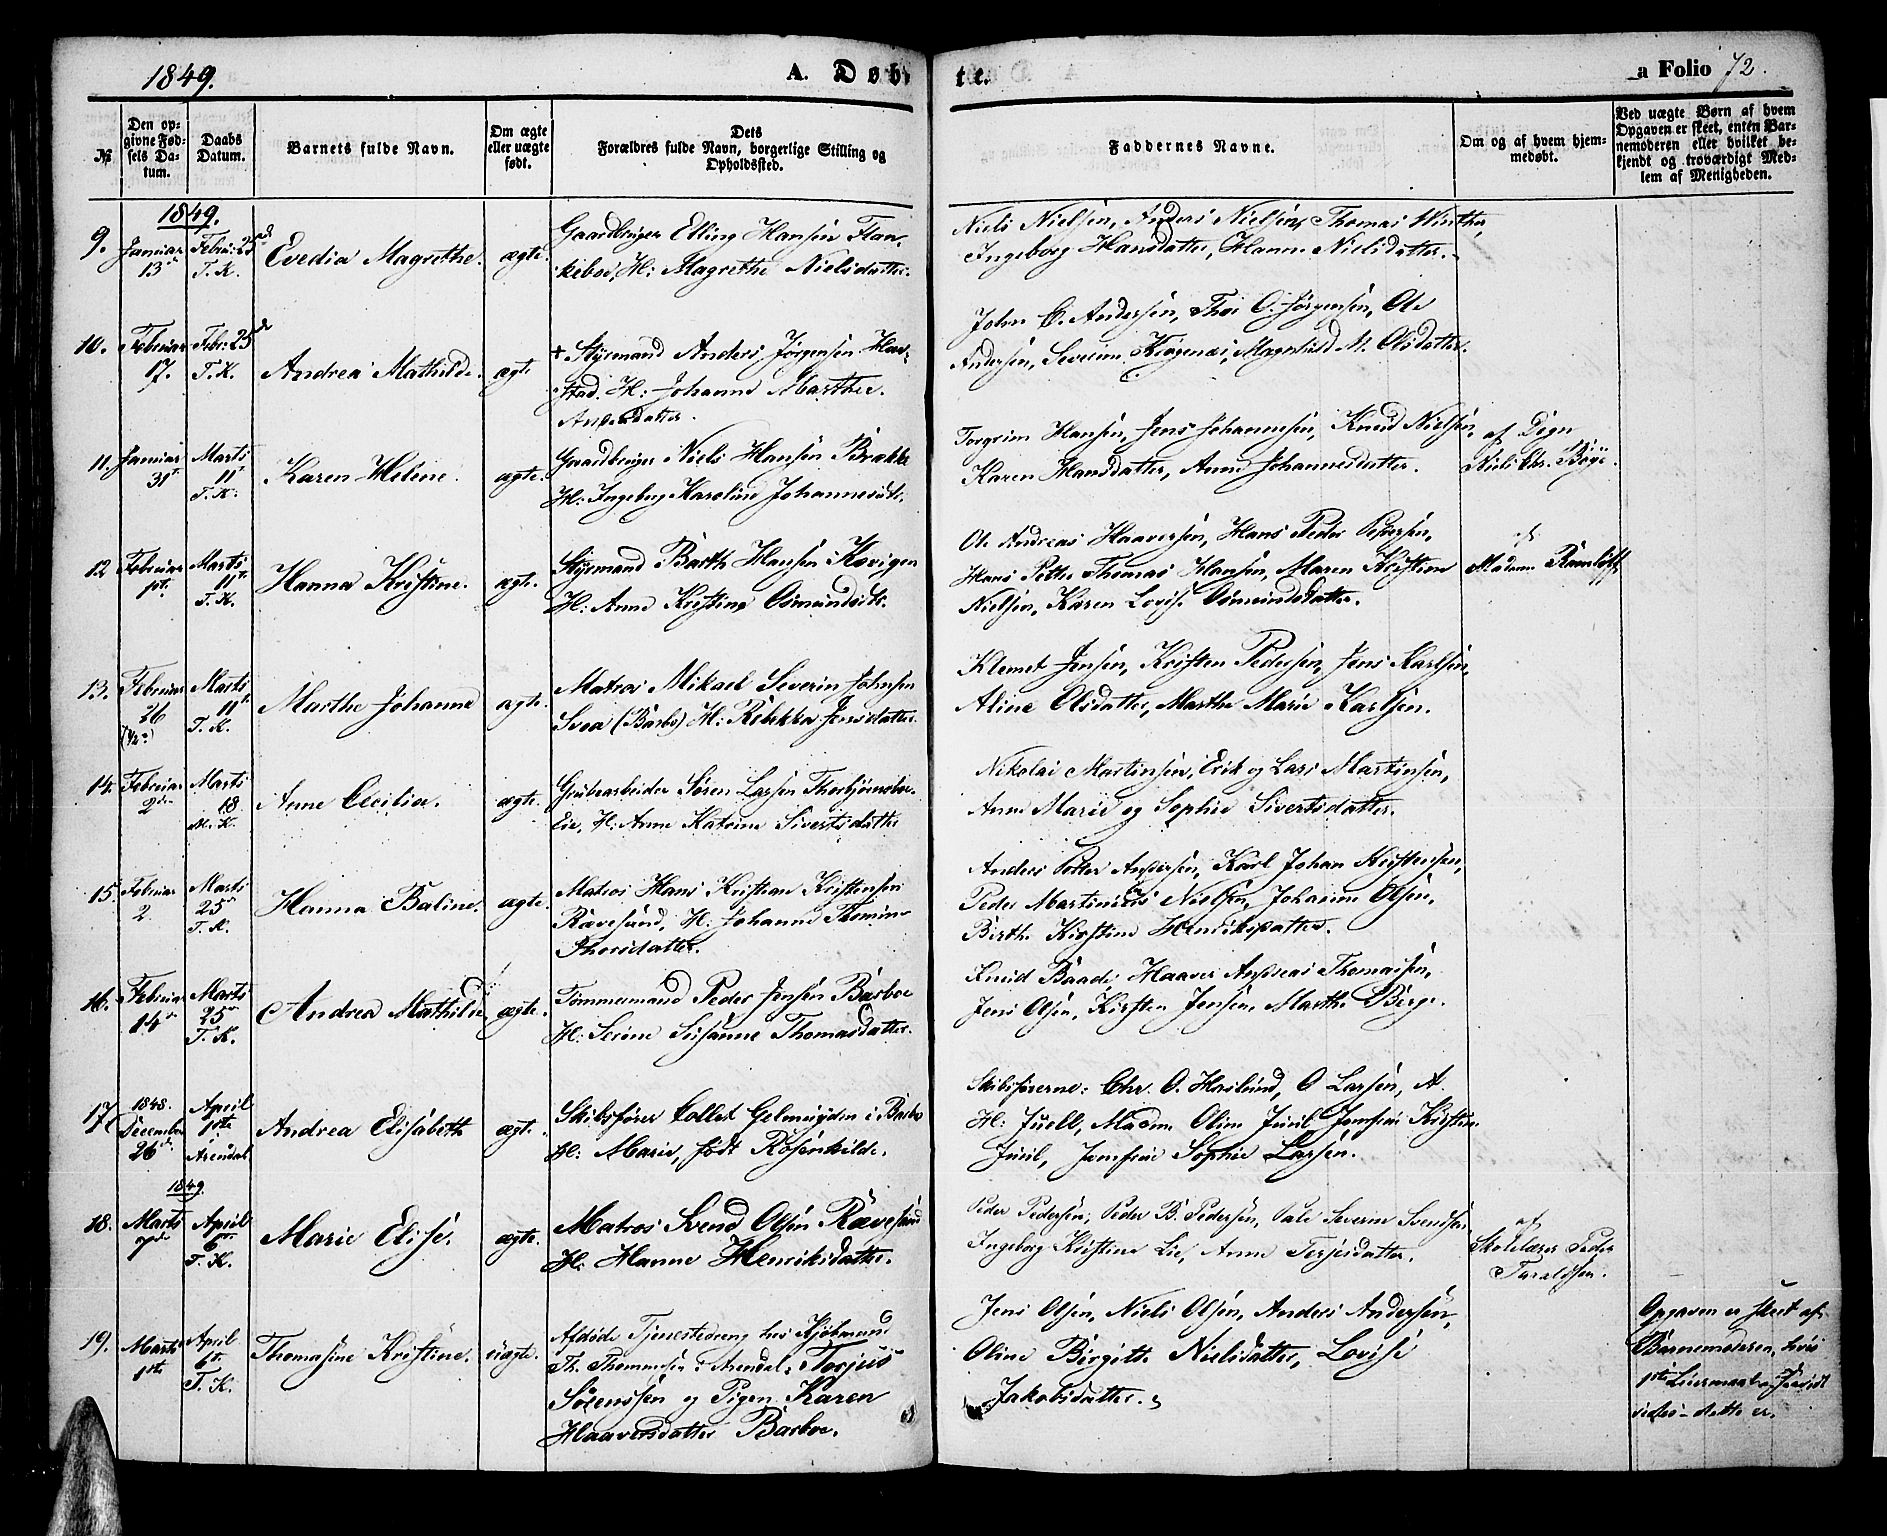 1849.
A. Døbte.
a Folio 72.
No.
Den opgivne Fødsels Datum.
Daabs Datum.
Barnets fulde Navn.
Om ægte eller uægte født.
Dets Forældres fulde Navn, borgerlige Stilling og Opholdssted.
Faddernes Navne.
Om og af hvem hjemmedøbt.
Ved uægte Børn af hvem Opgaven er skeet, enten Barnemoderen eller hvilket bekjendt og troværdigt Medlem af Menigheden.
1849.
9. Januar 13
Febru: 25
T. K.
Evedia Magrethe.
ægte.
Gaardbruger Elling Hansen Flan-
keboe, H: Magrethe Nielsdatter.
Niels Nielsen, Anders Nielsen, Thomas Winther,
Ingeborg Hansdatter, Hanne Nielsdatter.
10. Februar 17.
Febr: 25
T. K.
Andrea Mathilde.
ægte
+ Styrmand Anders Jørgensen Har-
stad. H: Johanne Marthee
Andersdatter.
John C. Andersen, Thor O. Jørgensen, Ole
Andersen, Severine Kirgenæs, Magnhild M. Olsdatter.
11. Januar 31
Marts 11
T. K.
Karen Helene.
ægte.
Gaardbruger Niels Hansen Brække
H: Ingeborg Karoline Johannesdt.
Torgrim Hansen, Jens Johannesen, Knud Nielsen,
Karen Hansdatter, Anne Johannesdatter.
af Degn
Niels Chr. Bøye.
12 Februar 1st.
Marts 11
T. K.
Hanna Kristine.
ægte.
Styrmand Barth Hansen Kovigen
H: Anne Kristine Osmundsdt.
Ole Andreas Haaversen, Hans Peder Pedersen,
Hans Petter Thomas Hansen, Maren Kristine
Nielsen, Karen Lovise Osmundsdatter.
af
Madam Ramløff.
13. Februar 26
Marts 11
T. K.
Marthe Johanne
ægte.
Matros Mikael Severin Johnsen
Svea (Barbo) H: Rebekka Jensdatter.
Klemet Jensen, Kristen Pedersen, Jens Karlsen,
Aline Olsdatter, Marthe Marie Karlsen.
14. Februar 2
Marts 18
M. K.
Anne Cecilia.
ægte.
Grubearbeider Søren Larsen Thorbjørnsboe
Eie, H: Anne Katrine Sivertsdatter
Nikolai Martinsen, Erik og Lars Martinsen,
Anne Marie og Sophie Sivertsdatter.
15. Februar 2.
Marts 25
T. K.
Hanna Baline.
ægte.
Matros Hans Kristian Kristensen
Rævesand, H: Johanne Thomine
Thorsdatter.
Anders Petter Andersen, Karl Johan Kristensen,
Peder Martinius Nielsen, Johanne Olsen,
Birthe Kirstine Henriksdatter.
16. Februar 14
Marts 25
T. K.
Andrea Mathilde
ægte.
Tømmermand Peder Jensen Barboe
H: Serine Susanne Thomasdatter.
Knud Baade, Haaver Andreas Thomassen,
Jens Olsen, Kirsten Jensen, Marthe Berge.
17. 1848. December 26
April 1ste
i Arendal
Andrea Elisabeth
ægt.
Skibsfører Collet Gelmuyden i Barbo
H: Marie, født Rosenkilde.
Skibsførerne: Chr. O. Haslund, O Larsen, A.
H: Juell, Madm. Oline Juel, Jomfrue Kirstine
Juel, Jomfrue Sophie Larsen.
1849.
18. Marts 7
April 6
T. K.
Marie Elise.
ægte.
Matros Svend Olsen Rævesand
H: Hanne Henriksdatter.
Peder Pedersen, Peder B. Pedersen, Pale Severin Svendsen,
Ingeborg Kristine Lie, Anne Terjesdatter.
af
Skolelærer Peder
Taraldsen.
19. Marts 1ste
April 6t.
T. K.
Thomasine Kristine.
uægte.
Afdøde Tjenestedreng hos Kjøbmand
Th. Thommesen i Arendal, Torjus
Sørenssen og Pigen Karen
Haaversdatter Barboe.
Jens Olsen, Niels Olsen, Anders Andersen,
Oline Birgitte Nielsdatter, Lovise
Jakobsdatter.
Opgaven er skeet af
Barnemoderen, hvis
1ste Leiermaal
dette er.